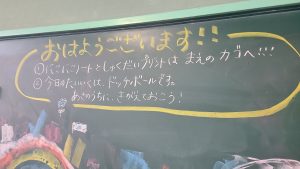 おはようございます!!
①にこにこノートとしゅくだいプリントは まえのカゴへ!!!
②今日のたいいくは、ドッヂボールです。
あさのうちに、きがえておこう!